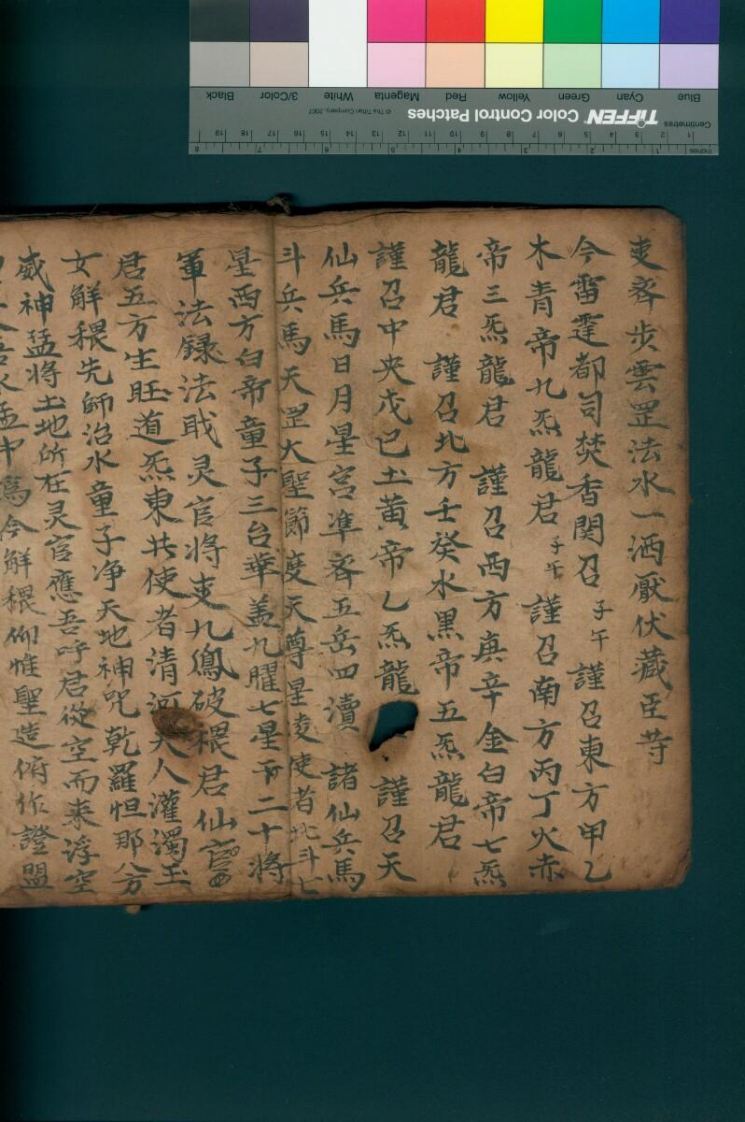 步雲罡法水一洒厭伏藏臣䒭
今雷霆都司焚香関召 子午 謹召東方甲乙
木青帝九炁龍君 子午 謹召南方丙丁火赤
帝三炁龍君 謹召西方庚辛金白帝七炁
龍君 謹召北方壬癸水黑帝五炁龍君
謹召中央戊己土黄帝乙炁龍 謹召天
仙兵馬日月星宫準斉五岳四瀆 諸仙兵馬
斗兵馬天罡大聖節度天尊星 使者北斗七
星西方白帝童子三台華盖九曜七星 二十將
軍法録法职灵官將吏九鳳破穢君仙官
君五方生旺道炁東井使者清河夫人灌濁玉
女解穢先師治水童子净天地神咒乾羅怛那八方
威神猛將土地所在灵官應吾呼君從空而来浮空
吾水盂中 今解穢仰惟聖造俯作證盟
TIFFEN Color Control Patches
© The Tiffen Company, 2007
Centimetres
Inches
Blue Cyan Green Yellow Red Magenta White 3/Color Black